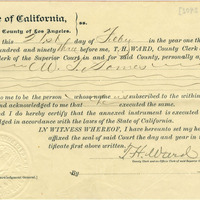 e of California, } ss.
County of Los Angeles.
this 21st day of Feby in the year one th
hundred and ninety three before me, T. H. WARD, County Clerk
Clerk of the Superior Court in and for said County, personally a
W. T. Somes
to me to be the person whose name is subscribed to the within
and acknowledged to me that he executed the same.
I do hereby certify that the annexed instrument is execut
dged in accordance with the laws of the State of California.
IN WITNESS WHEREOF, I have hereunto set my h
affixed the seal of said Court the day and year in t
tificate first above written.
T. H. Ward
By